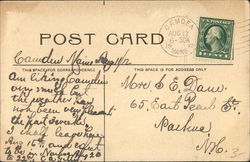 POST CARD
CAMDEN
AUG 12
THIS SPACE FOR CORRESPONDENCE
THIS SPACE IS FOR ADDRESS ONLY
Camden Maine Aug 11/12
Am liking Camden
very much but
the weather has
not been very pleasant
the past week
I shall leave here
Aug 16th and expect
to be in
Mrs. C. E. Dow
65, East Pearl St
Nashua
N.H.